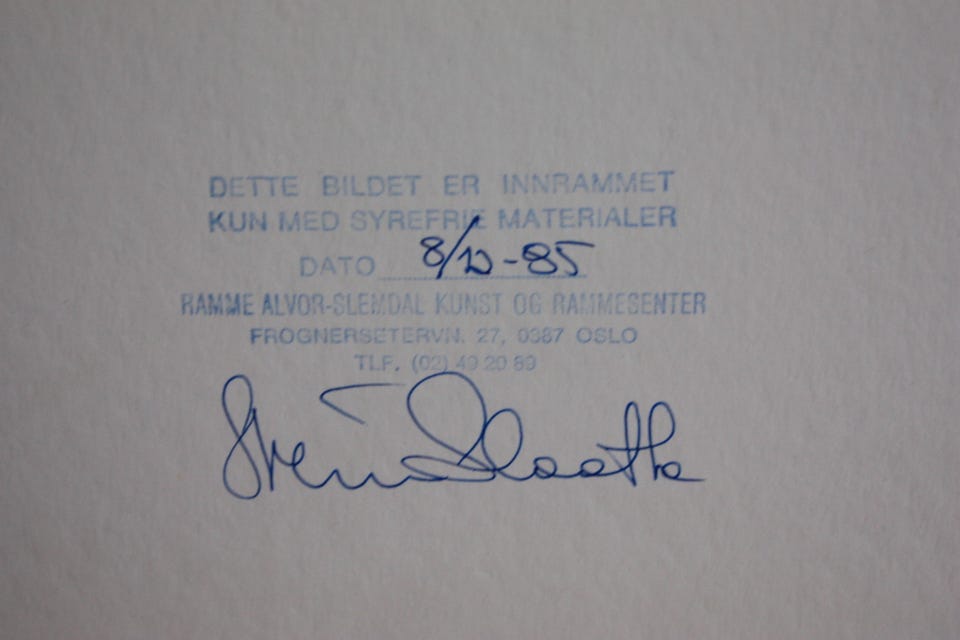 DETTE BILDET ER INNRAMMET
KUN MED SYREFRIE MATERIALER
DATO 8/12-85
RAMME ALVOR-SLEMDAL KUNST OG RAMMESENTER
FROGNERSETERVN. 27, 0387 OSLO
TLF. (02) 49 20 89